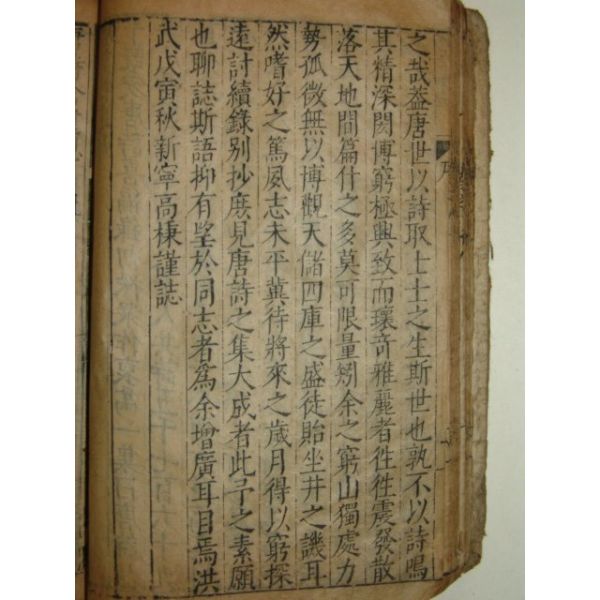 之哉蓋唐世以詩取士士之生斯世也孰不以詩鳴
其精深閎博窮極興致而瓌奇雅麗者徃徃震發散
落天地間篇什之多莫可限量矧余之窮山獨處力
勢孤微無以博觀天儲四庫之盛徒貽坐井之譏耳
然嗜好之篤夙志未平冀待將來之歲月得以窮探
遠討續錄别抄庶見唐詩之集大成者此予之素願
也聊誌斯語抑有望於同志者爲余增廣耳目焉洪
武戊寅秋新寧高棅謹誌